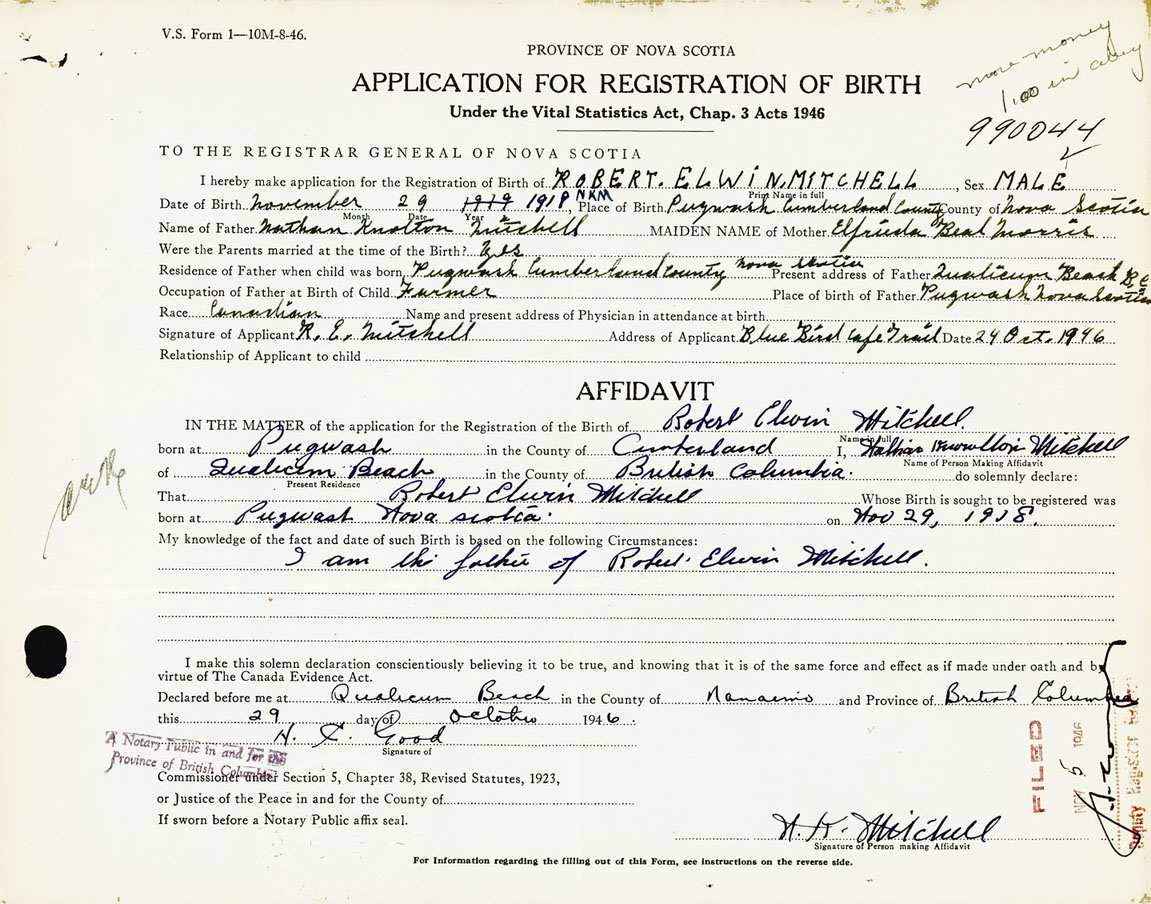 V.S. Form 1—10M-8-46.
more money
1.00 in
990044
PROVINCE OF NOVA SCOTIA
APPLICATION FOR REGISTRATION OF BIRTH
Under the Vital Statistics Act, Chap. 3 Acts 1946
TO THE REGISTRAR GENERAL OF NOVA SCOTIA
I hereby make application for the Registration of Birth of ROBERT. ELWIN. MITCHELL, Sex MALE
Print Name in full
Date of Birth November 29 1919 1918 NKM, Place of Birth Pugwash Cumberland County County of Nova Scotia
Month Date Year
Name of Father Nathan Knolton Mitchell MAIDEN NAME of Mother Elfrieda Beal Morris
Were the Parents married at the time of the Birth? Yes
Residence of Father when child was born Pugwash Cumberland County Nova Scotia Present address of Father Qualicum Beach B.C.
Occupation of Father at Birth of Child Farmer Place of birth of Father Pugwash Nova Scotia
Race Canadian Name and present address of Physician in attendance at birth
Signature of Applicant R. E. Mitchell Address of Applicant Blue Bird Cafe Trail Date 24 Oct. 1946
Relationship of Applicant to child
AFFIDAVIT
IN THE MATTER of the application for the Registration of the Birth of Robert Elwin Mitchell
Name in full
born at Pugwash in the County of Cumberland I, Nathan Knowlton Mitchell
Name of Person Making Affidavit
of Qualicum Beach in the County of British Columbia. do solemnly declare:
Present Residence
That Robert Elwin Mitchell Whose Birth is sought to be registered was
born at Pugwash Nova Scotia. on Nov 29, 1918.
My knowledge of the fact and date of such Birth is based on the following Circumstances:
I am the father of Robert Elwin Mitchell.
I make this solemn declaration conscientiously believing it to be true, and knowing that it is of the same force and effect as if made under oath and b
virtue of The Canada Evidence Act.
Declared before me at Qualicum Beach in the County of Nanaimo and Province of British Columbia
this 29 day of October 1946.
H. Good
Signature of
A Notary Public in and for the
Province of British Columbia
Commissioner under Section 5, Chapter 38, Revised Statutes, 1923,
or Justice of the Peace in and for the County of
If sworn before a Notary Public affix seal.
N. K. Mitchell
Signature of Person making Affidavit
FILED
NOV 5 1946
Deputy Registrar
For Information regarding the filling out of this Form, see instructions on the reverse side.